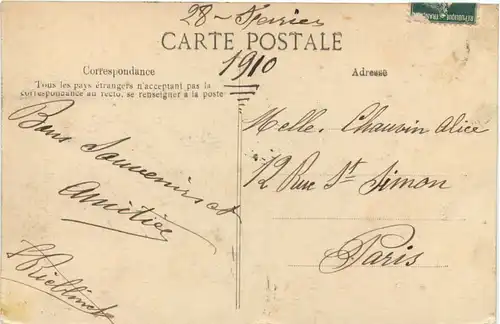 28 - Fevrier
1910
CARTE POSTALE
Correspondance
Tous les pays étrangers n'acceptant pas la
correspondance au recto, se renseigner à la poste
Adresse
Bons Souvenirs et
Amitiés
Melle. Chauvin Alice
12 Rue St Simon
Paris